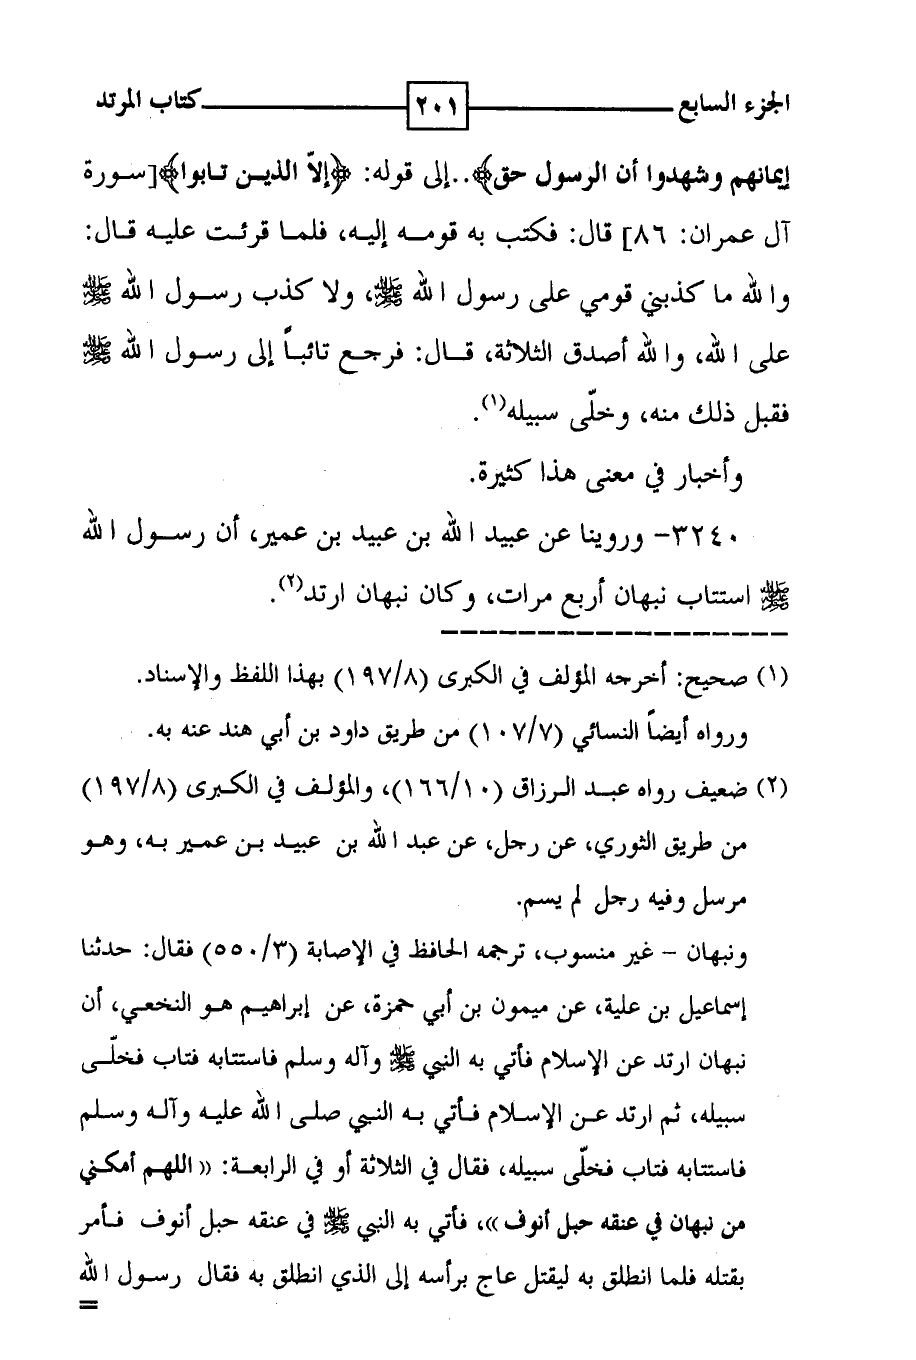 الجزء السابع ٢٠١ كتاب المرتد
إيمانهم وشهدوا أن الرسول حق﴾..إلى قوله: ﴿إلاّ الذيـن تـابوا﴾[سـورة
آل عمران: ٨٦] قال: فكتب به قومـه إليه، فلمـا قرئـت عليـه قـال:
والله ما كذبني قومي على رسول الله ﷺ، ولا كذب رسـول الله ﷺ
على الله، والله أصدق الثلاثة، قـال: فرجـع تائبـاً إلى رسـول الله ﷺ
فقبل ذلك منه، وخلّى سبيله(١).
وأخبار في معنى هذا كثيرة.
٣٢٤٠- وروينا عن عبيد الله بن عبيد بن عمير، أن رسـول الله
ﷺ استتاب نبهان أربع مرات، وكان نبهان ارتد(٢).
(١) صحيح: أخرجه المؤلف في الكبرى (١٩٧/٨) بهذا اللفظ والإسناد.
ورواه أيضاً النسائي (١٠٧/٧) من طريق داود بن أبي هند عنه به.
(٢) ضعيف رواه عبـد الـرزاق (١٦٦/١٠)، والمؤلـف في الكـبرى (١٩٧/٨)
من طريق الثوري، عن رجل، عن عبد الله بن عبيـد بـن عمـير بـه، وهـو
مرسل وفيه رجل لم يسم.
ونبهان - غير منسوب، ترجمه الحافظ في الإصابة (٥٥٠/٣) فقال: حدثنا
إسماعيل بن علية، عن ميمون بن أبي حمزة، عن إبراهيـم هـو النخعـي، أن
نبهان ارتد عن الإسلام فأتي به النبي ﷺ وآله وسلم فاستتابه فتاب فخلّـى
سبيله، ثم ارتد عـن الإسـلام فـأتي بـه النـبي صلـى الله عليـه وآلـه وسـلم
فاستتابه فتاب فخلّى سبيله، فقال في الثلاثة أو في الرابعـة: «اللهـم أمكـني
من نبهان في عنقه حبل أنوف»، فأتي به النبي ﷺ في عنقه حبل أنوف فـأمر
بقتله فلما انطلق به ليقتل عاج برأسه إلى الذي انطلق به فقال رسـول الله
=